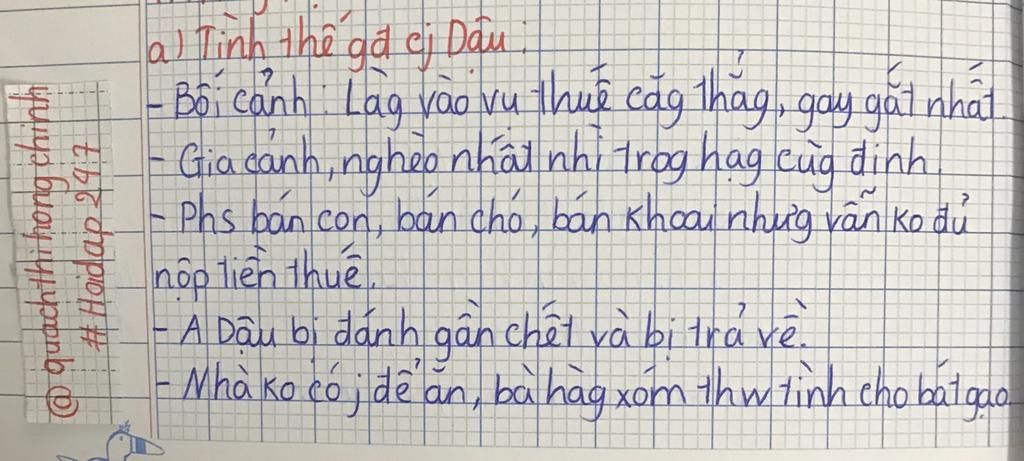 a) Tình thế gđ cị Dậu:
- Bối cảnh: Làg vào vụ thuế căg thẳg, gay gắt nhất.
- Gia cảnh, nghèo nhất nhì trog hạg cùg đinh.
- Phs bán con, bán chó, bán khoai nhưg vẫn ko đủ
nộp tiền thuế.
- A Dậu bị đánh gần chết và bị trả về.
- Nhà ko có j để ăn, bà hàg xóm thw tình cho bát gạo
@ quachthihongchinh
# Hoidap247